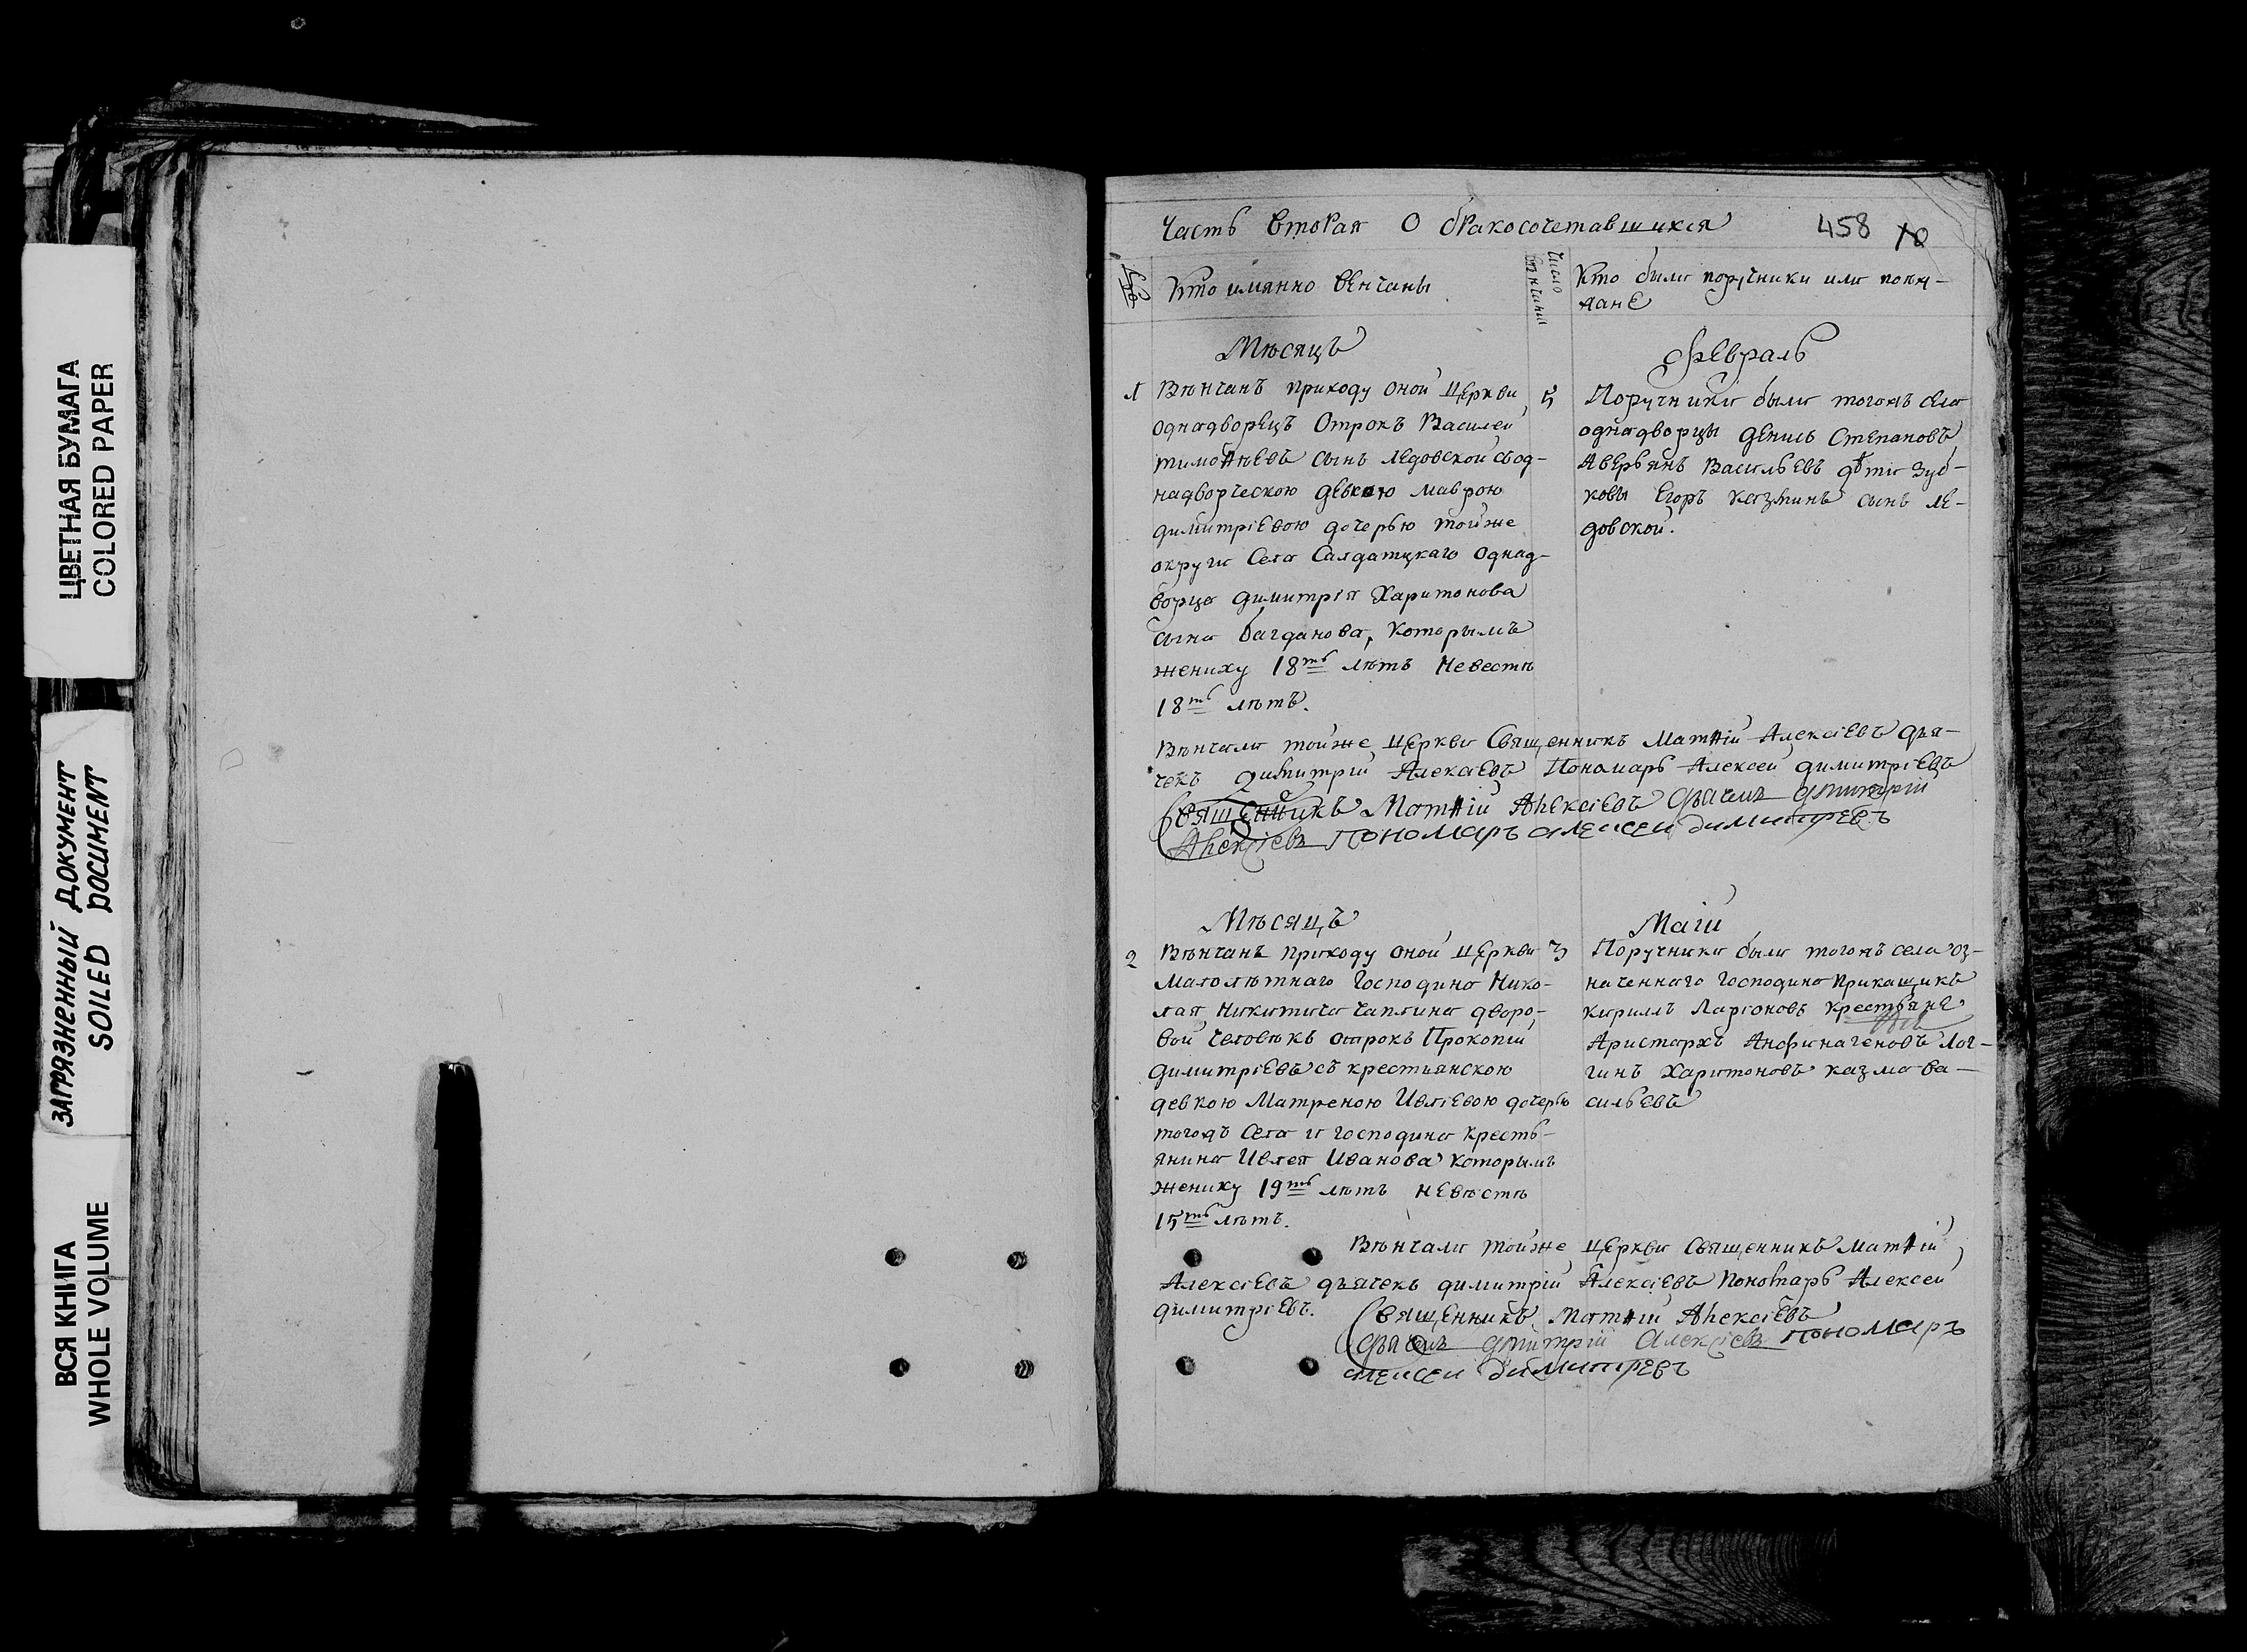 ЦВЕТНАЯ БУМАГА
COLORED PAPER
ЗАГРЯЗНЕННЫЙ ДОКУМЕНТ
SOILED DOCUMENT
ВСЯ КНИГА
WHOLE VOLUME
Часть вторая О бракосочетавшихся 458 10
Кто имянно венчаны
Число венчания
Кто были поручники или поезжане
Мѣсяцъ
Февраль
1
Вѣнчанъ приходу оной церкви
однадворецъ Отрокъ Василей
тимоѳѣевъ сынъ Ледовской съод-
надворческою девкою маврою
димитріевою дочерью тойже
округи Села Салдатцкаго Однад-
ворца димитрія Харитонова
сына багданова, которымъ
жениху 18ть лѣтъ невестѣ
18ть лѣтъ.
5
Поручники были тогожъ села
однадворцы денись Степановъ
Аверьянъ Васильевъ дѣти Зуб-
ковы Егоръ Казминъ сынъ Ле-
довской.
Вѣнчали тойже церкви Священникъ Матѳій Алексіевъ дья-
чекъ Димитрій Алексіевъ Пономарь Алексей димитріевъ
Священникъ Матѳій Алексіевъ Дьячекъ Дмитрій
Алексіевъ Пономаръ алексеи димитревъ
Мѣсяцъ
Маій
2
Вѣнчанъ приходу оной церкви
Малолѣтнаго Господина Нико-
лая Никитича Чаплина дворо-
вой человѣкъ отрокъ Прокопій
димитріевъ съ крестьянскою
девкою Матреною Ивліевою дочерью
тогожъ Села и господина кресть-
янина Ивлея Иванова которымъ
жениху 19ть лѣтъ невѣстѣ
15ть лѣтъ.
3
Поручники были тогожъ села оз-
наченнаго Господина прикащикъ
кирилъ Ларіоновъ крестьяне
Аристархъ Анфиногеновъ Лог-
гинъ Харитоновъ казма ва-
сильевъ
Вѣнчали тойже церкви Священникъ матѳій
Алексіевъ дьячекъ димитрій Алексіевъ пономарь Алексей
димитріевъ.
Священникъ Матѳій Алексіевъ
Дьячекъ Дмитрій Алексіевъ Пономаръ
алексеи димитревъ